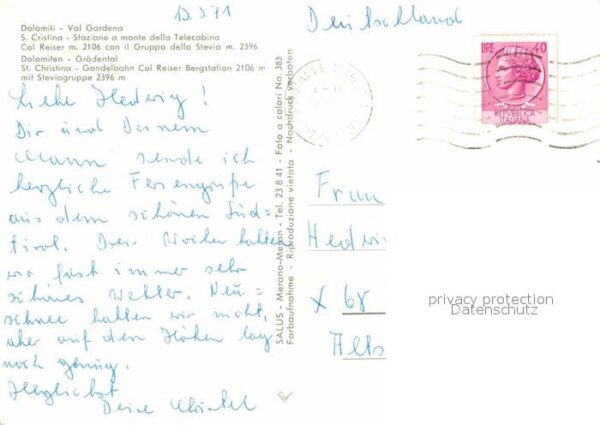 13.3.71
Dolomiti - Val Gardena
S. Cristina - Stazione a monte della Telecabina
Col Reiser m. 2106 con il Gruppo della Stevia m. 2396
Dolomiten - Grödental
St. Christina - Gondelbahn Col Reiser Bergstation 2106 m
mit Steviagruppe 2396 m
Liebe Hedwig!
Dir und Deinem
Mann sende ich
herzliche Feriengrüße
aus dem schönen Süd-
tirol. Drei Wochen hatten
wir fast immer sehr
schönes Wetter. Neu-
schnee hatten wir nicht,
aber auf den Höhen lag
noch genug.
Herzlichst
Deine Christel
SALUS - Merano-Meran - Tel. 23 8 41 - Foto a colori No. 383
Farbaufnahme - Riproduzione vietata - Nachdruck verboten
Deutschland
LIRE 40
REPUBBLICA
ITALIANA
Frau
Hedwi
X 68
Alts
privacy protection
Datenschutz